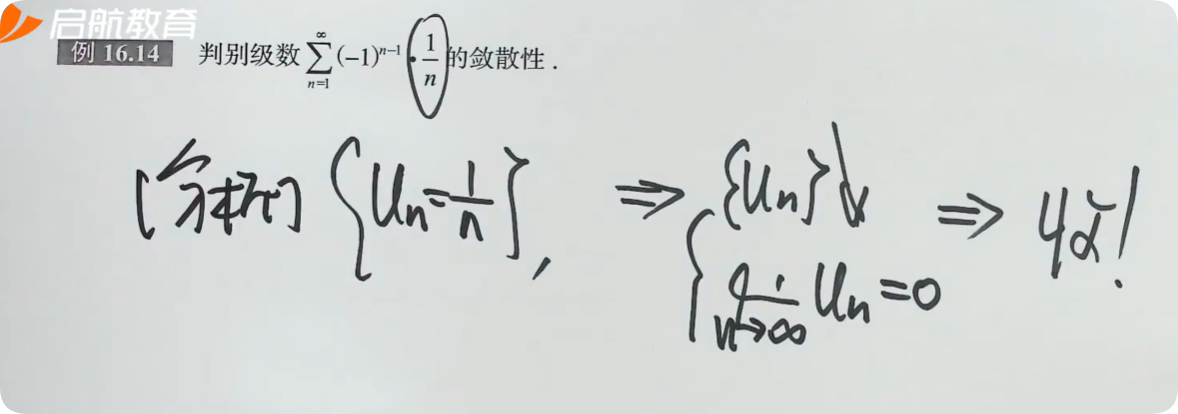 启航教育
例 16.14 判别级数 ∑_{n=1}^{∞} (-1)^{n-1} · 1/n 的敛散性.
[分析] {Un = 1/n}, ⇒ {Un}↓ ⇒ 收!
lim_{n→∞} Un = 0